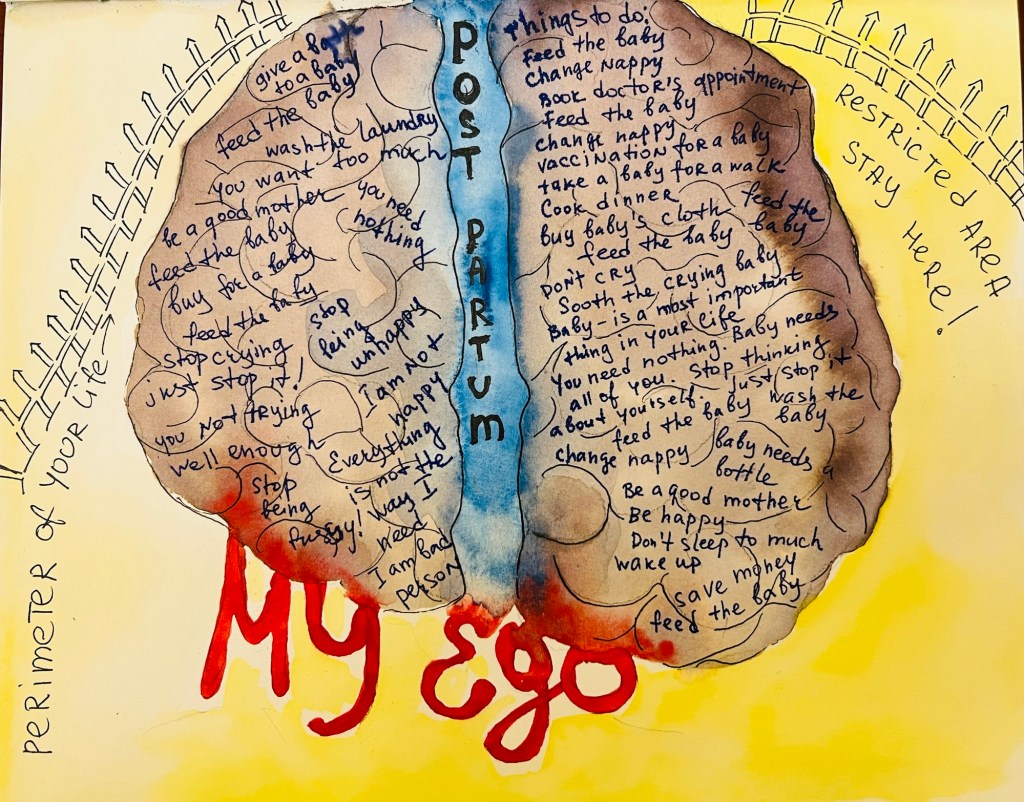 give a bath
to a baby
feed the baby
wash the laundry
you want too much
be a good mother
you need
nothing
feed the baby
buy for a baby
feed the baby
stop
being
unhappy
stop crying
just stop it!
you not trying
well enough
I am not
happy
Everything
is not the
way I
need
stop
being
fussy!
I am bad
person
POST PARTUM
Things to do:
Feed the baby
Change Nappy
Book doctor's appointment
Feed the baby
change nappy
vaccination for a baby
take a baby for a walk
Cook dinner
feed the
baby
Buy baby's cloth
feed the baby
Don't cry
Sooth the crying baby
Baby - is a most important
thing in your life.
You need nothing. Baby needs
all of you
stop thinking
about yourself.
just stop it
feed the baby
wash the
baby
change nappy
baby needs a
bottle
Be a good mother
Be happy
Don't sleep to much
wake up
save money
feed the baby
My Ego
PERIMETER of YOUR Life →
RESTRICTED AREA
STAY HERE!